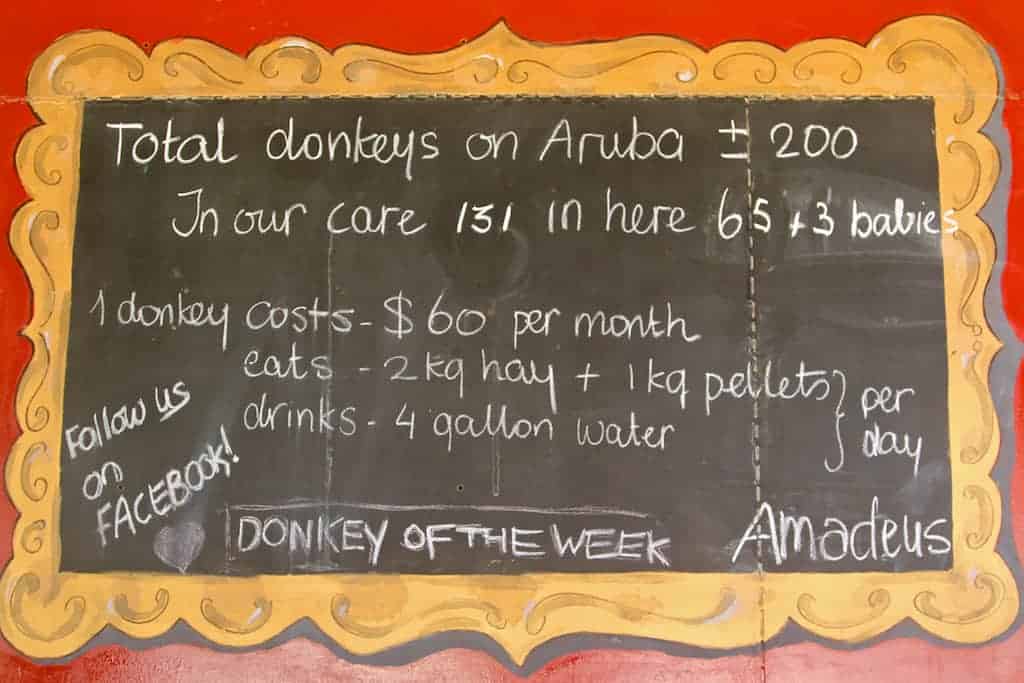 Total donkeys on Aruba ± 200
In our care 131 in here 65 + 3 babies
1 donkey costs - $60 per month
eats - 2 kg hay + 1 kg pellets } per
drinks - 4 gallon water } day
Follow us
on
FACEBOOK!
DONKEY OF THE WEEK Amadeus